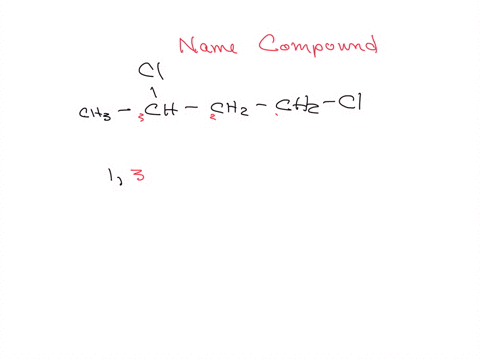 Name Compound
Cl
CH3 - 3CH - 2CH2 - 1CH2 - Cl
1, 3